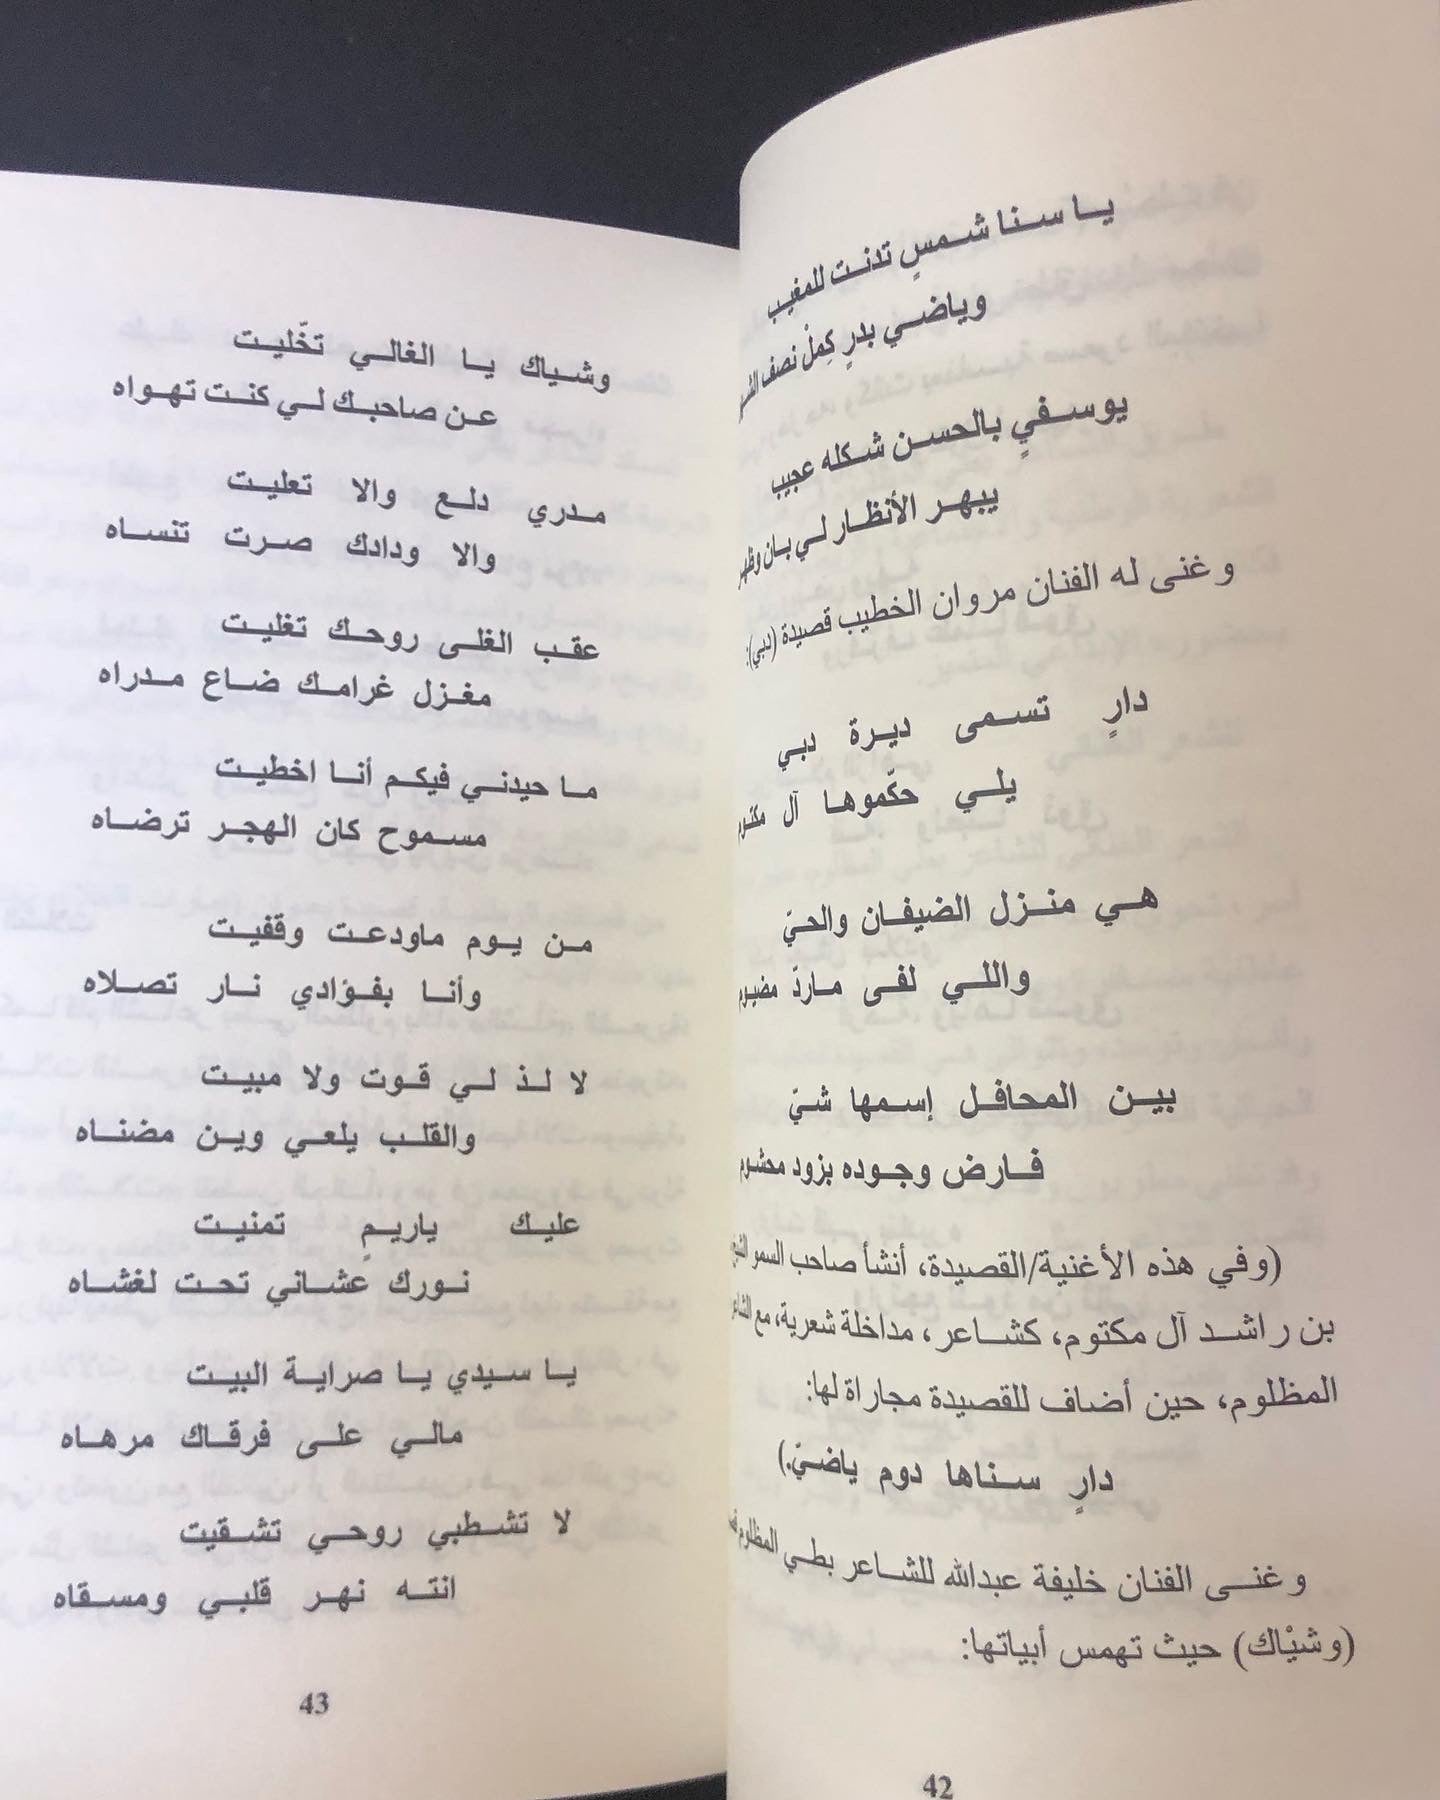 يا سنا شمسٍ تدنت للمغيب
وياضي بدرٍ كِملْ نصف
يوسفيٍ بالحسن شكله عجيب
يبهر الأنظار لي بان وظهر
وغنى له الفنان مروان الخطيب قصيدة (دبي):
دارٍ تسمى ديرة دبي
يلي حكّموها آل مكتوم
هي منزل الضيفان والحيّ
واللي لفى ماردّ مضيوم
بين المحافل إسمها شيّ
فارض وجوده بزود محشوم
(وفي هذه الأغنية/القصيدة، أنشأ صاحب السمو
بن راشد آل مكتوم، كشاعر، مداخلة شعرية، مع
المظلوم، حين أضاف للقصيدة مجاراة لها:
دارٍ سناها دوم ياضيّ.)
وغنى الفنان خليفة عبدالله للشاعر بطي المظلوم
(وشيْاك) حيث تهمس أبياتها:
42
وشياك يا الغالي تخّليت
عن صاحبك لي كنت تهواه
مدري دلع والا تعليت
والا ودادك صرت تنساه
عقب الغلى روحك تغليت
مغزل غرامك ضاع مدراه
ما حيدني فيكم أنا اخطيت
مسموح كان الهجر ترضاه
من يوم ماودعت وقفيت
وأنا بفؤادي نار تصلاه
لا لذ لي قوت ولا مبيت
والقلب يلعي وين مضناه
عليك ياريمٍ تمنيت
نورك عشاني تحت لغشاه
يا سيدي يا صراية البيت
مالي على فرقاك مرهاه
لا تشطبي روحي تشقيت
انته نهر قلبي ومسقاه
43